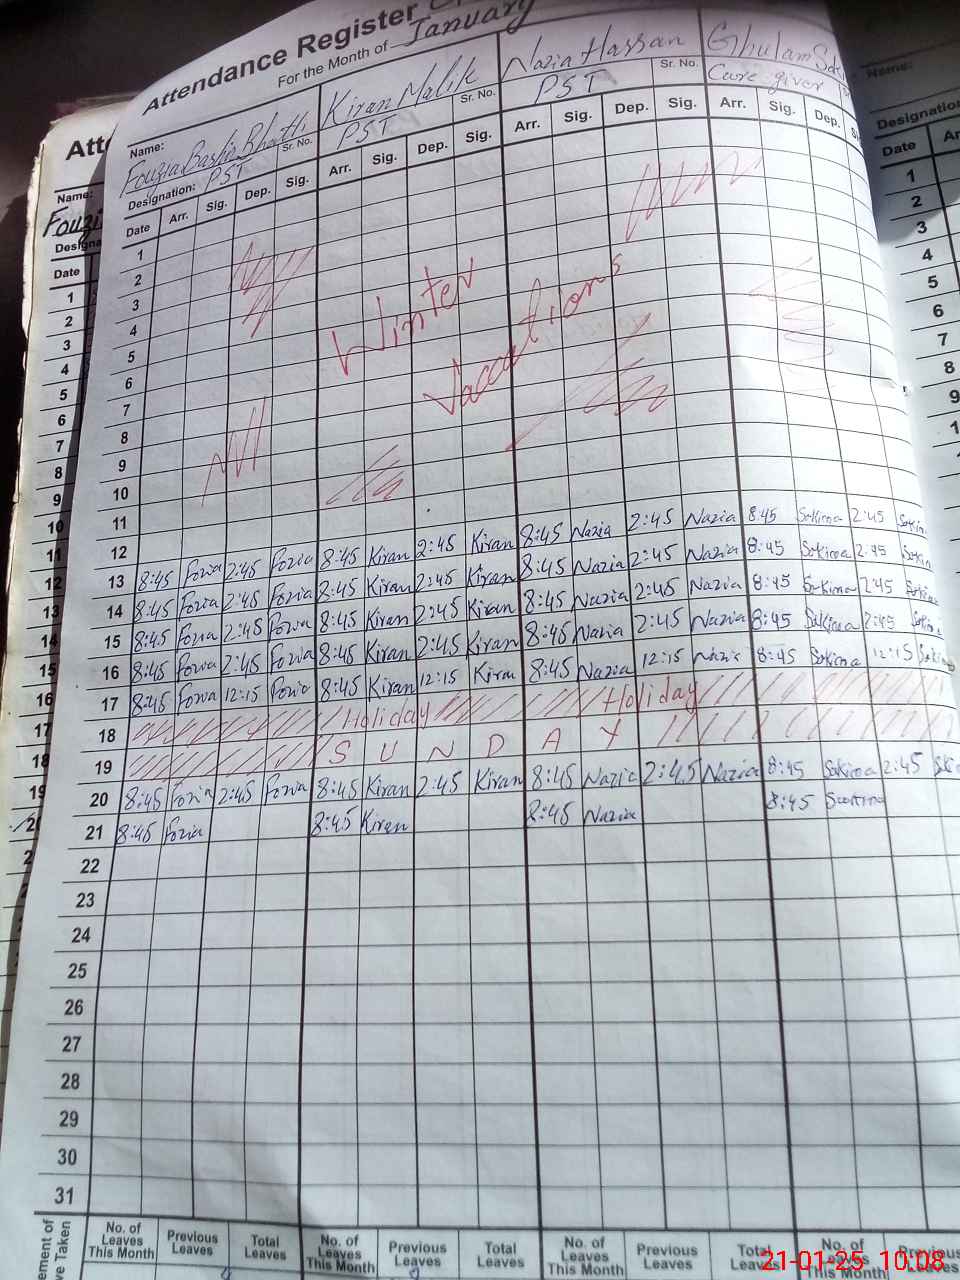 Attendance Register
For the Month of January
Name: Fouzia Bashir Bhatti Sr. No. Kiran Malik Sr. No. Nazia Hassan Sr. No. Ghulam
Designation: PST PST PST Care giver
Date Arr. Sig. Dep. Sig. Arr. Sig. Dep. Sig. Arr. Sig. Dep. Sig. Arr. Sig. Dep.
1
2
3
4
5
6
7
8
9
10
11
12
Winter
Vaccations
13 8:45 Fozia 2:45 Fozia 8:45 Kiran 2:45 Kiran 8:45 Nazia 2:45 Nazia 8:45 Sakina 2:45
14 8:45 Fozia 2:45 Fozia 8:45 Kiran 2:45 Kiran 8:45 Nazia 2:45 Nazia 8:45 Sakina 2:45
15 8:45 Fozia 2:45 Fozia 8:45 Kiran 2:45 Kiran 8:45 Nazia 2:45 Nazia 8:45 Sakina 2:45
16 8:45 Fozia 2:45 Fozia 8:45 Kiran 2:45 Kiran 8:45 Nazia 2:45 Nazia 8:45 Sakina 2:45
17 8:45 Fozia 12:15 Fozia 8:45 Kiran 12:15 Kiran 8:45 Nazia 12:15 Nazia 8:45 Sakina 12:15
18 Holiday Holiday
19 SUNDAY
20 8:45 Fozia 2:45 Fozia 8:45 Kiran 2:45 Kiran 8:45 Nazia 2:45 Nazia 8:45 Sakina 2:45
21 8:45 Fozia 8:45 Kiran 8:45 Nazia 8:45 Sakina
22
23
24
25
26
27
28
29
30
31
No. of Leaves This Month Previous Leaves Total Leaves No. of Leaves This Month Previous Leaves Total Leaves No. of Leaves This Month Previous Leaves No. of Leaves This Month Previous Leaves
21-01-25 10:08